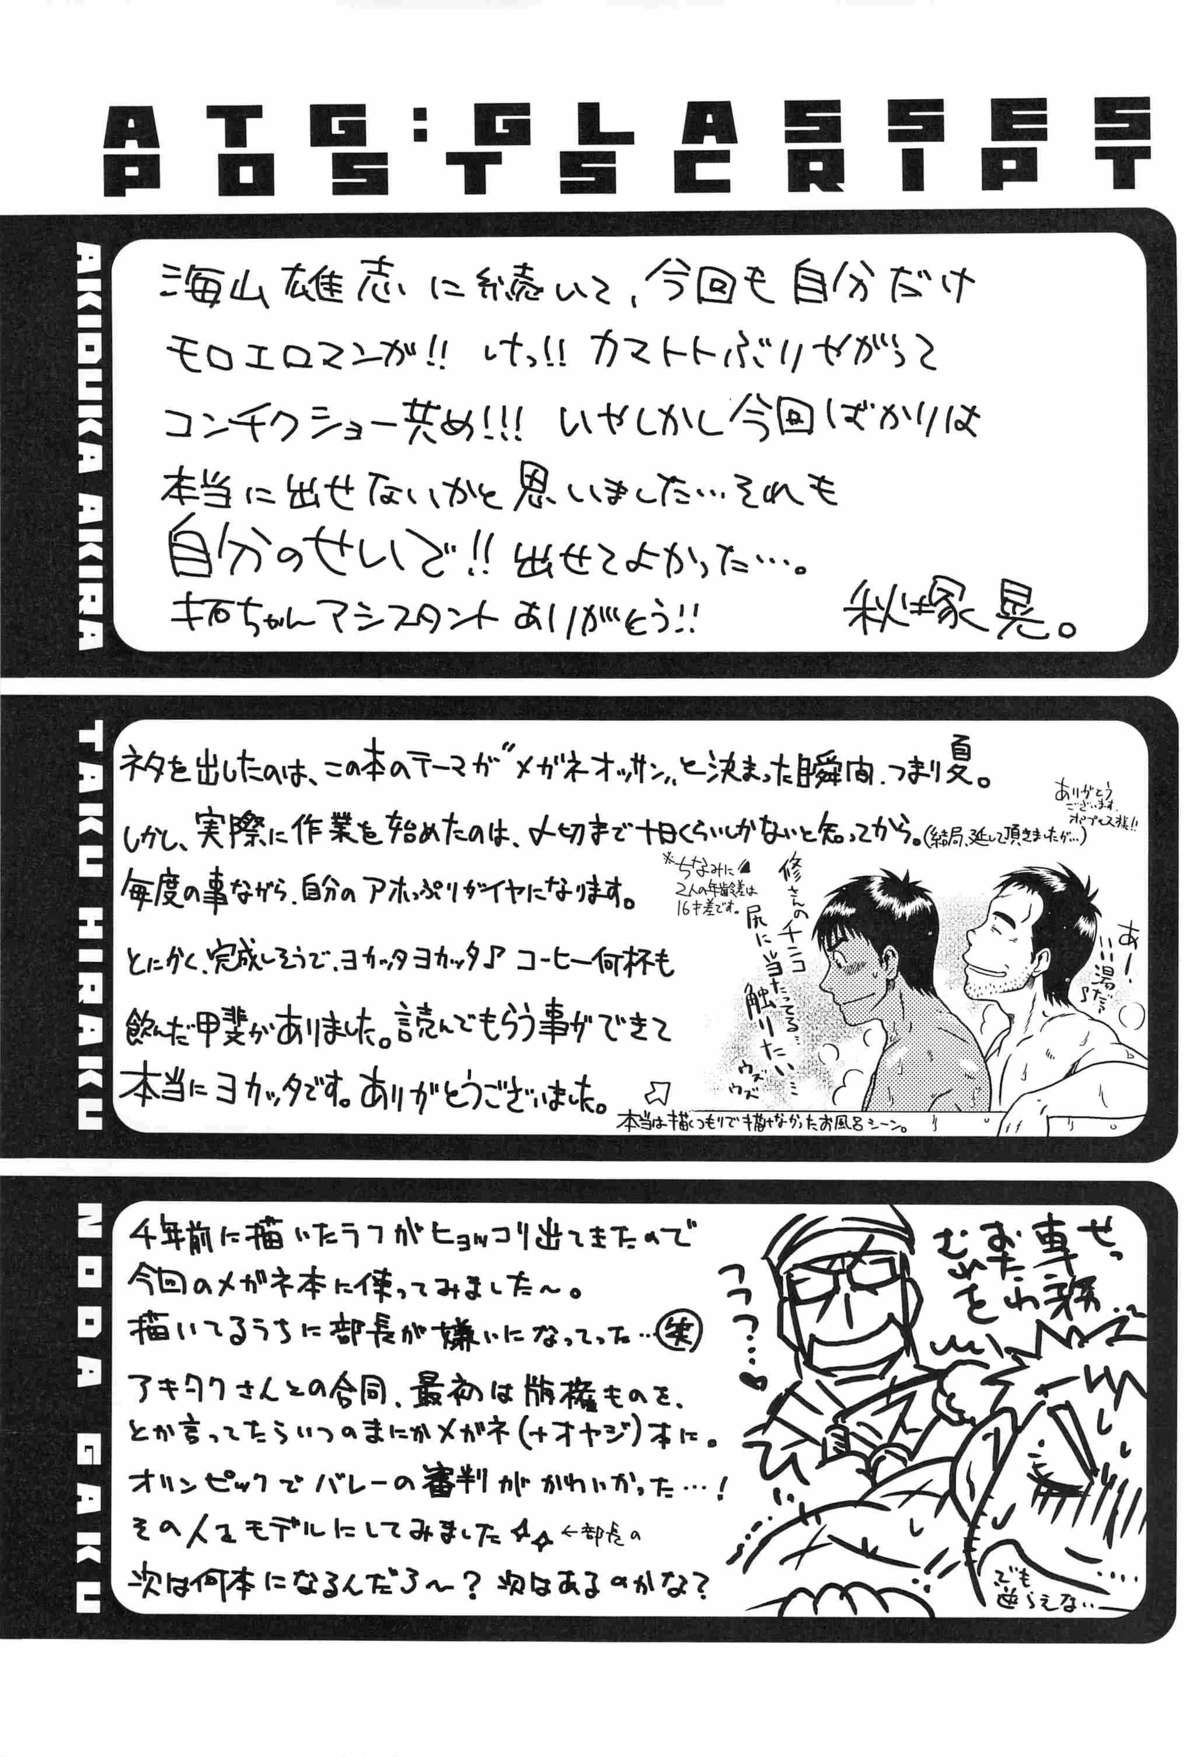 ATG:GLASSES
POSTSCRIPT
AKIDUKA AKIRA
海山雄志に続いて、今回も自分だけ
モロエロマンが!! けっ!! カマトトぶりやがって
コンチクショー共め!!! いやしかし今回ばかりは
本当に出せないかと思いました…それも
自分のせいで!! 出せてよかった…。
ちゃんアシスタントありがとう!!
秋塚晃。
TAKU HIRAKU
ネタを出したのは、この本のテーマが“メガネオッサン”と決まった瞬間、つまり夏。
しかし、実際に作業を始めたのは、〆切まで十日くらいしかないと知ってから。(結局、延して頂きましたが…)
毎度の事ながら、自分のアホっぷりがイヤになります。
とにかく、完成しそうで、ヨカッタヨカッタ♪ コーヒー何杯も
飲んだ甲斐がありました。読んでもらう事ができて
本当にヨカッタです。ありがとうございました。
ありがとう
ございます、
※ちなみに
2人の年齢差は
16才差です。
修さんのチンコ
尻に当たってる…
触りたい…
ウズ
ウズ
あー
いい湯だ♪
本当は描くつもりで描けなかったお風呂シーン。
NODA GAKU
4年前に描いたラフがヒョッコリ出てきたので
今回のメガネ本に使ってみました〜。
描いてるうちに部長が嫌いになってった…(笑)
アキタクさんとの合同、最初は版権ものを、
とか言ってたらいつのまにかメガネ(+オヤジ)本に。
オリンピックでバレーの審判がかわいかった…!
その人をモデルにしてみました☆☆ ←部長の
次は何本になるんだろ〜? 次はあるのかな?
つつつ…♡
せっ
専務…
おたわ
むれを
でも
逆らえない…